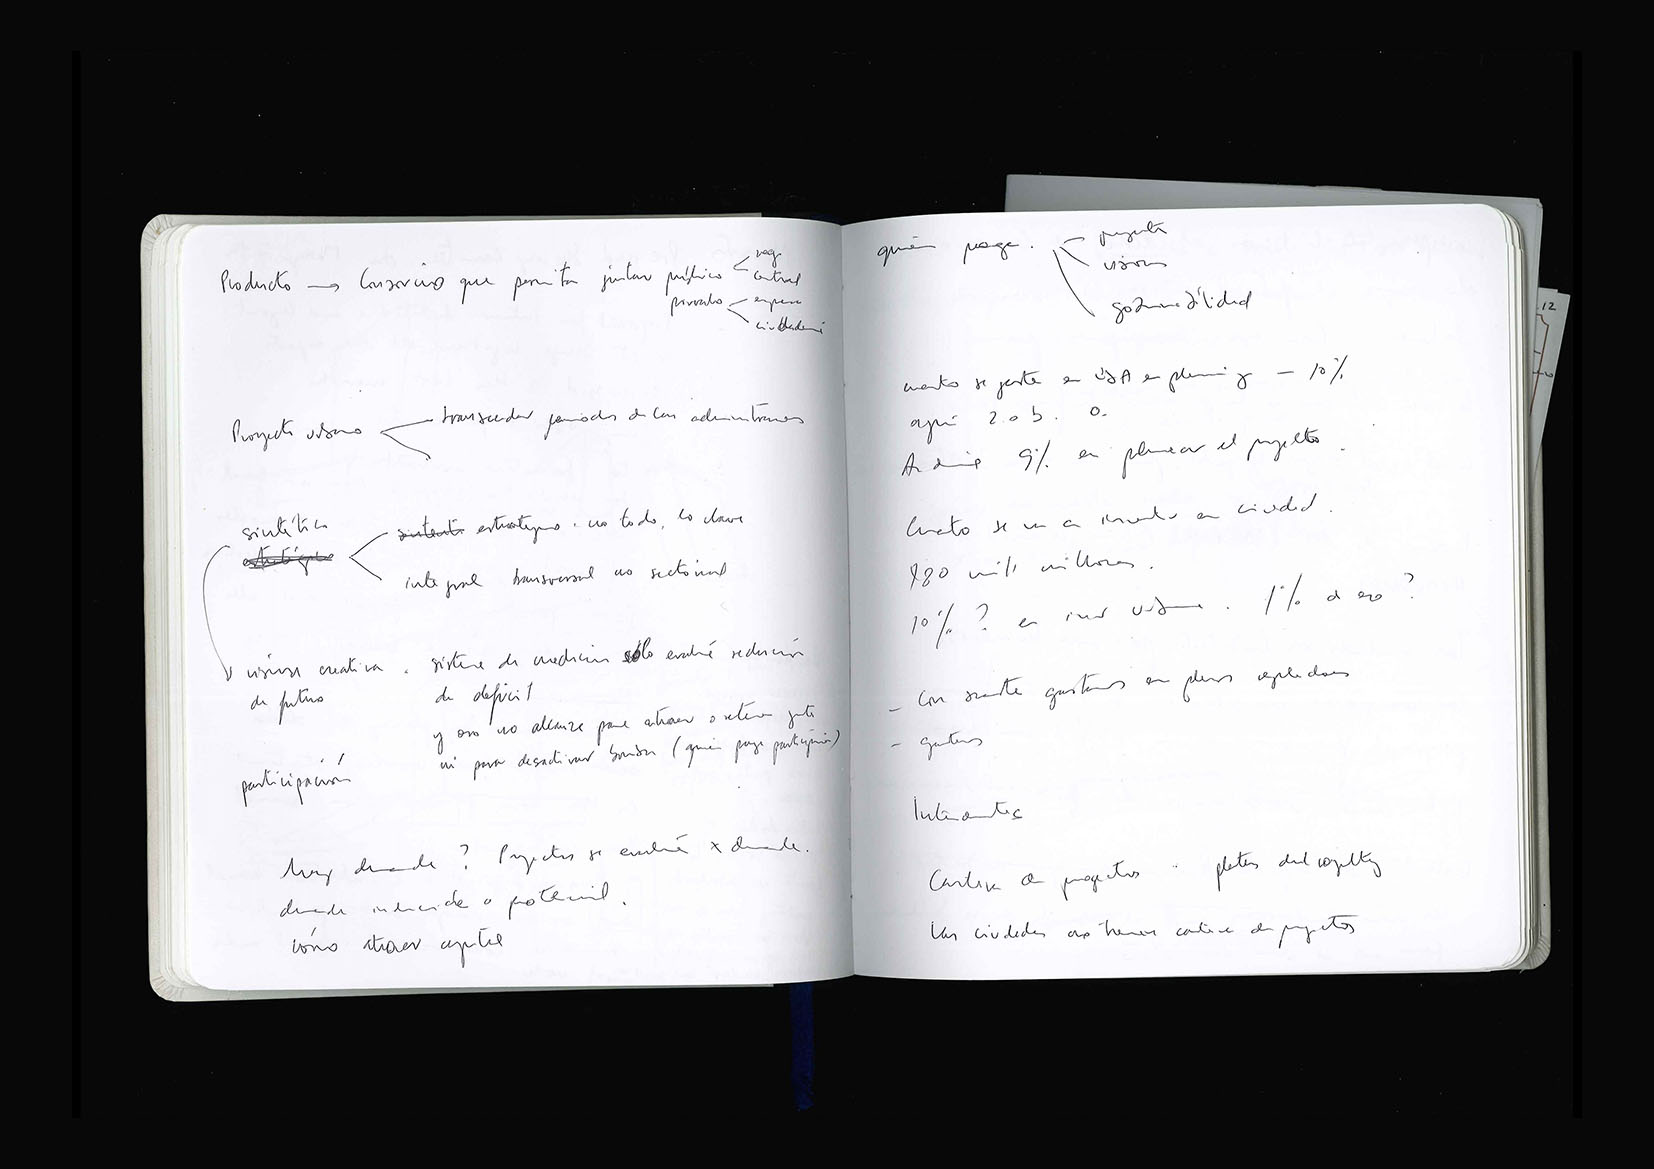 Producto → Consorcio que permita juntar público < reg
central
privado < empresa
ciudadanía
Proyecto urbano < transcender periodos de las administraciones
sintético < estratégico. no todo, lo clave
integral transversal no sectorial
visión creativa . sistema de medición sólo evalúa reducción
de futuro de deficit
y eso no alcanza para atraer o retener gente
participación ni para desactivar bomba (quien paga participación)
hay demanda? Proyectos se evalúa x demanda.
demanda inducida o potencial.
cómo atraer capital
quién paga. proyecto
visión
gobernabilidad
cuanto se gasta en USA en planning – 10%
aquí 2. o 3. 0.
9% en planear el proyecto.
Cuanto se va a invertir en ciudad.
mil millones.
10%? en inv urbana. 1% de eso?
- Con suerte gastamos en planos reguladores
- gastemos
Interesantes
Cartera de proyectos . platas del royalty
Las ciudades no tienen cartera de proyectos
.12